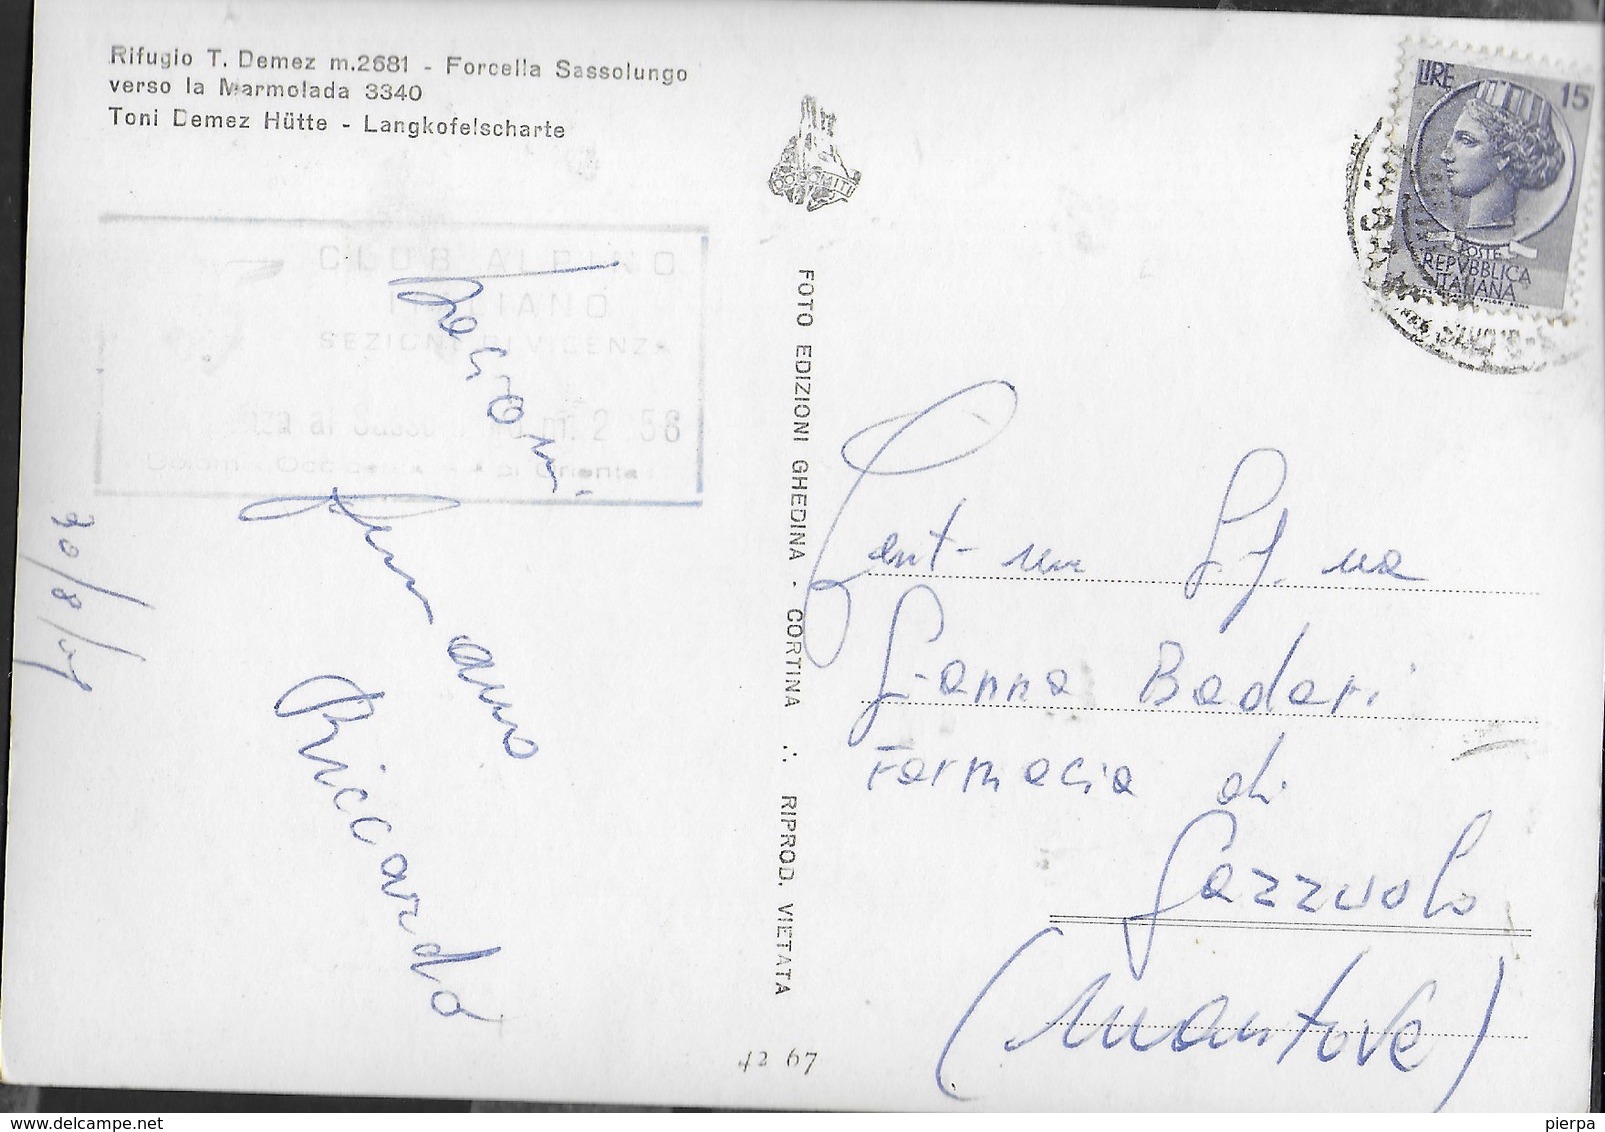 Rifugio T. Demez m.2681 - Forcella Sassolungo
verso la Marmolada 3340
Toni Demez Hütte - Langkofelscharte
DOLOMITI
CLUB ALPINO
ITALIANO
SEZIONE DI VICENZA
al Sasso m. 2 56
FOTO EDIZIONI GHEDINA - CORTINA ∴ RIPROD. VIETATA
LIRE 15
POSTE
REPVBBLICA
ITALIANA
Riccardo
Gent-ma Sig.na
Gianna Badari
Farmacia di
Gazzuolo
(Mantova)
42 67
pierpa